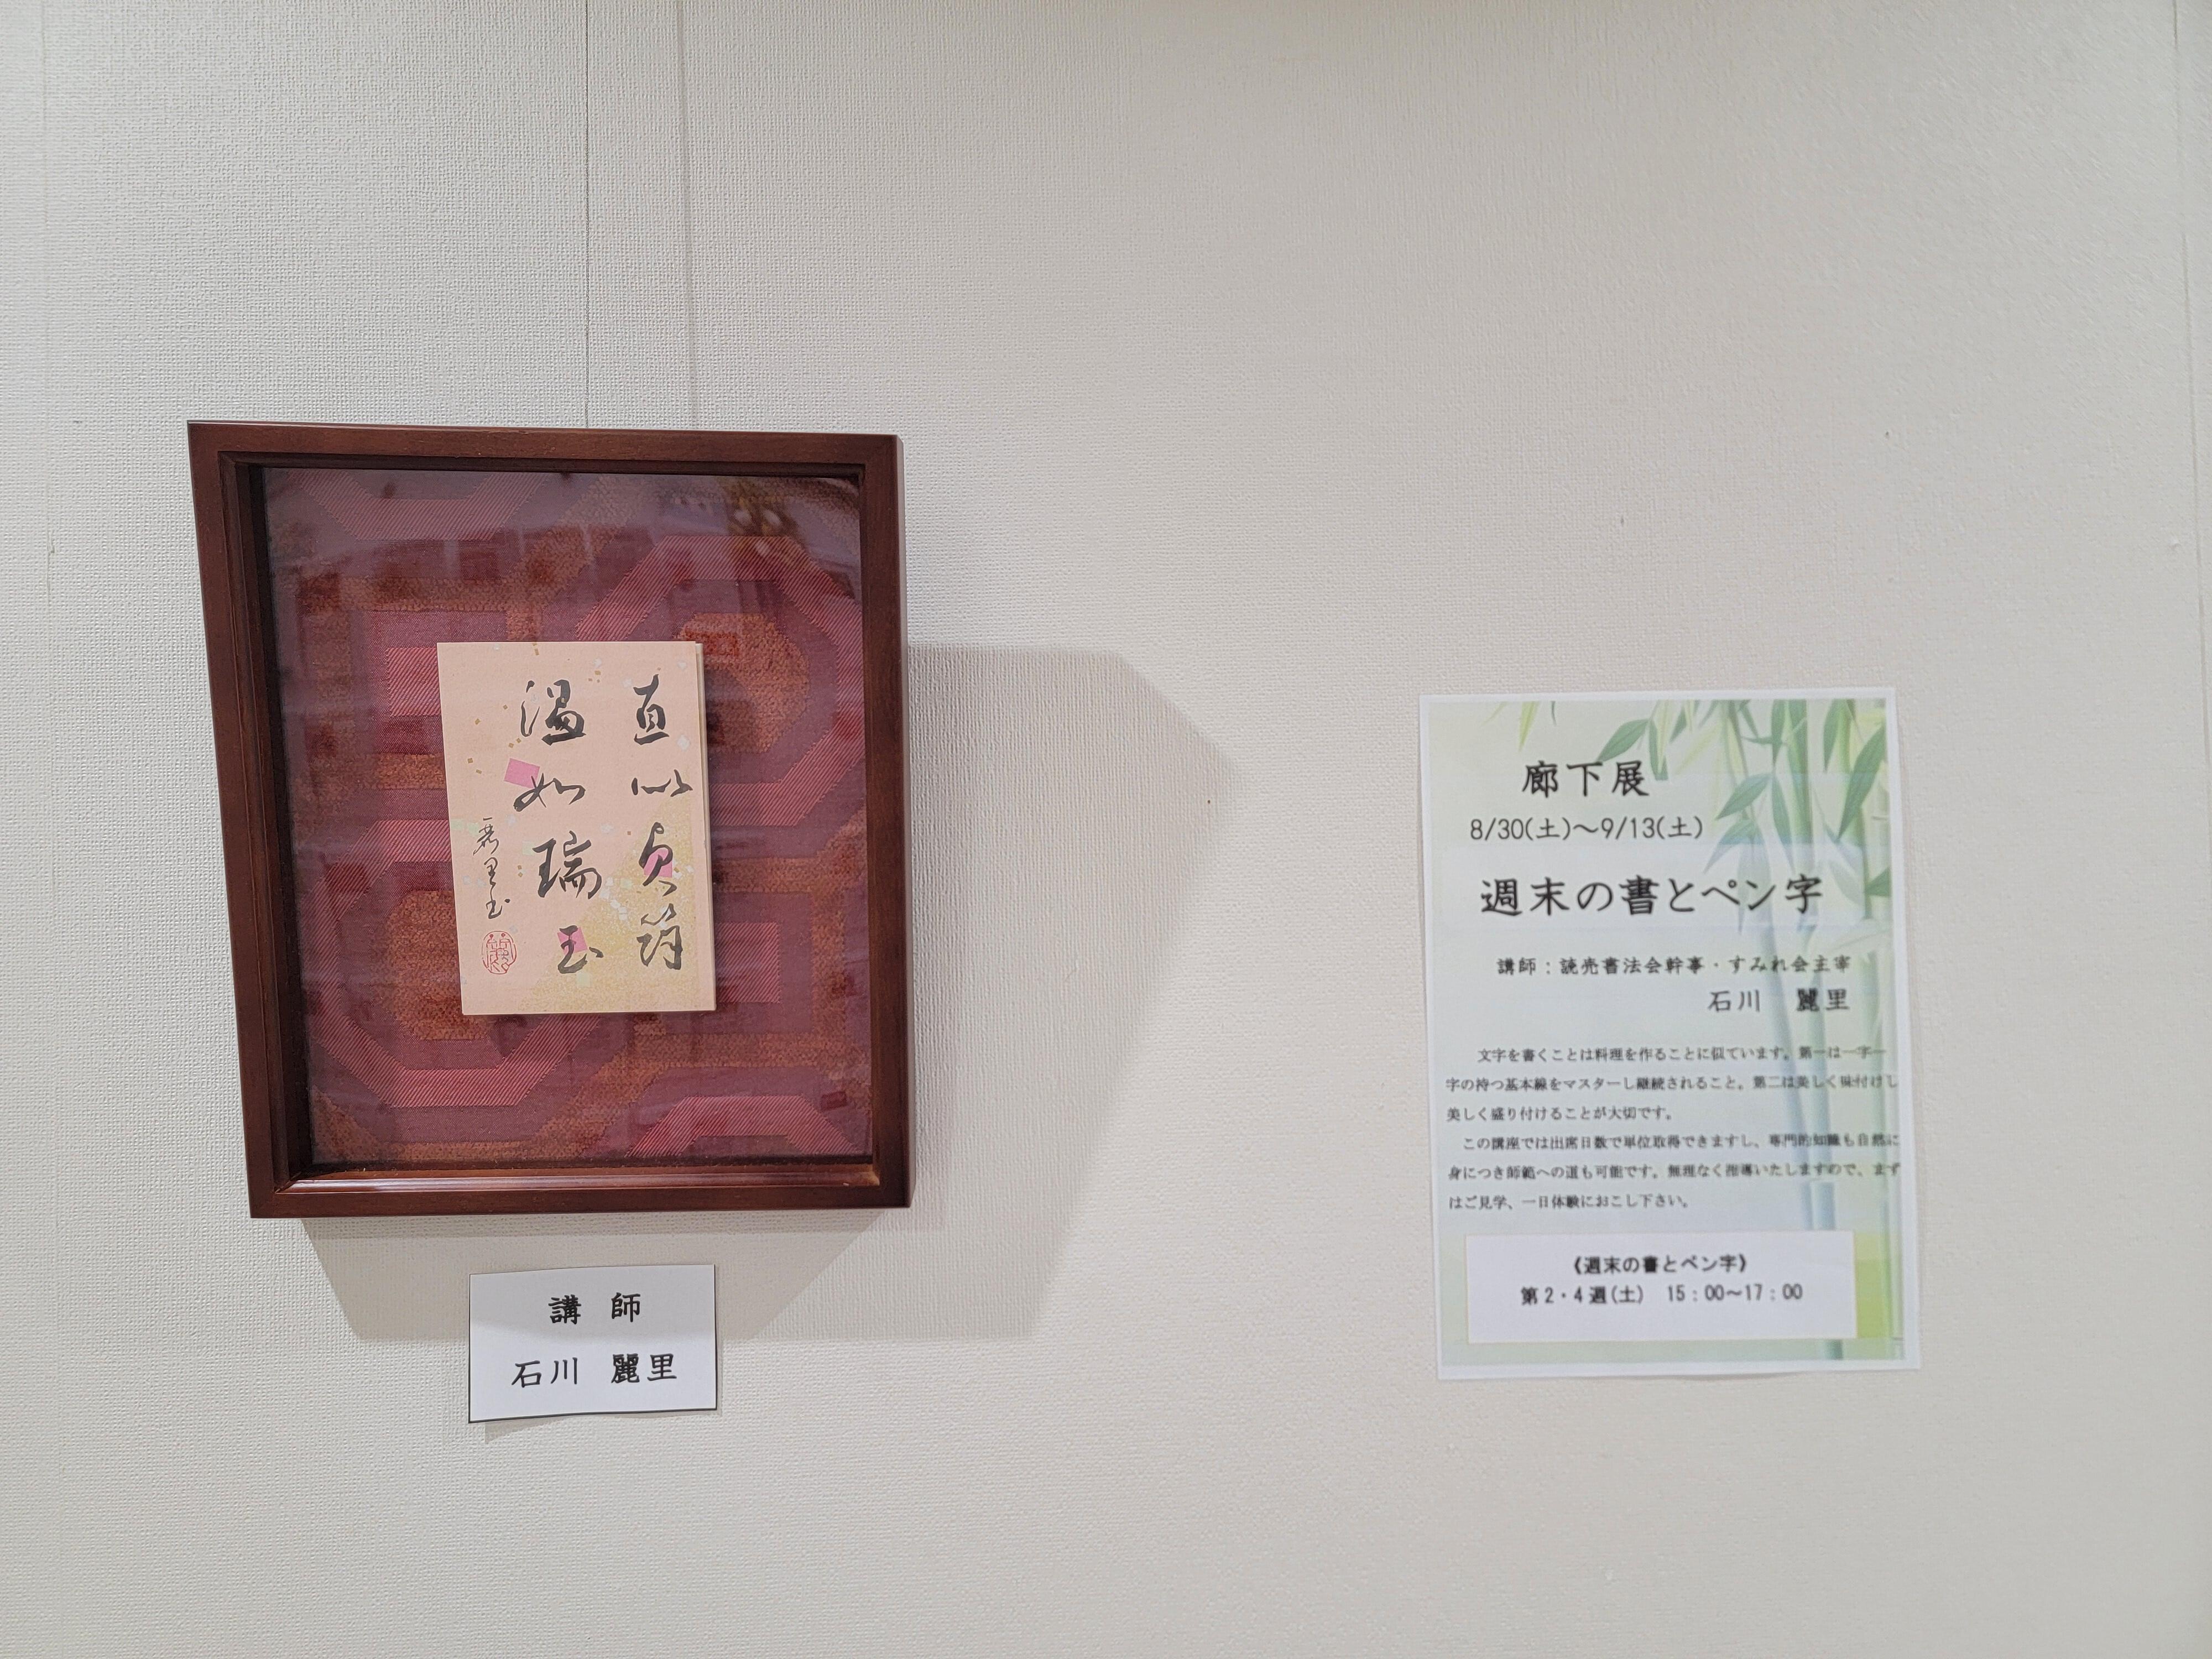 直似貞筠
温如瑞玉
麗里書
講 師
石川 麗里
廊下展
8/30(土)～9/13(土)
週末の書とペン字
講師：読売書法会幹事・すみれ会主宰
石川 麗里
文字を書くことは料理を作ることに似ています。第一は一字一
字の持つ基本線をマスターし継続されること。第二は美しく味付けし
美しく盛り付けることが大切です。
この講座では出席日数で単位取得できますし、専門的知識も自然に
身につき師範への道も可能です。無理なく指導いたしますので、まず
はご見学、一日体験におこし下さい。
《週末の書とペン字》
第2・4週(土) 15：00～17：00